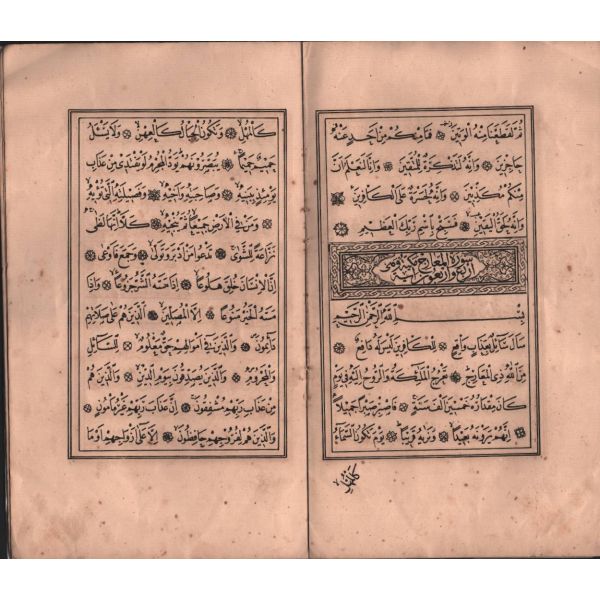 ثُمَّ لَقَطَعْنَا مِنْهُ الْوَتِينَ فَمَا مِنْكُمْ مِنْ اَحَدٍ عَنْهُ
حَاجِزِينَ وَاِنَّهُ لَتَذْكِرَةٌ لِلْمُتَّقِينَ وَاِنَّا لَنَعْلَمُ اَنَّ
مِنْكُمْ مُكَذِّبِينَ وَاِنَّهُ لَحَسْرَةٌ عَلَى الْكَافِرِينَ
وَاِنَّهُ لَحَقُّ الْيَقِينِ فَسَبِّحْ بِاسْمِ رَبِّكَ الْعَظِيمِ
سورة المعارج مكية وهى
اربع واربعون آية
بِسْمِ اللّٰهِ الرَّحْمٰنِ الرَّحِيمِ
سَاَلَ سَائِلٌ بِعَذَابٍ وَاقِعٍ لِلْكَافِرِينَ لَيْسَ لَهُ دَافِعٌ
مِنَ اللّٰهِ ذِى الْمَعَارِجِ تَعْرُجُ الْمَلٰئِكَةُ وَالرُّوحُ اِلَيْهِ فِى يَوْمٍ
كَانَ مِقْدَارُهُ خَمْسِينَ اَلْفَ سَنَةٍ فَاصْبِرْ صَبْرًا جَمِيلًا
اِنَّهُمْ يَرَوْنَهُ بَعِيدًا وَنَرٰيهُ قَرِيبًا يَوْمَ تَكُونُ السَّمَاءُ
كَالْمُهْلِ
كَالْمُهْلِ وَتَكُونُ الْجِبَالُ كَالْعِهْنِ وَلَا يَسْئَلُ
حَمِيمٌ حَمِيمًا يُبَصَّرُونَهُمْ يَوَدُّ الْمُجْرِمُ لَوْ يَفْتَدِى مِنْ عَذَابِ
يَوْمِئِذٍ بِبَنِيهِ وَصَاحِبَتِهِ وَاَخِيهِ وَفَصِيلَتِهِ الَّتِى تُؤْيهِ
وَمَنْ فِى الْاَرْضِ جَمِيعًا ثُمَّ يُنْجِيهِ كَلَّا اِنَّهَا لَظٰى
نَزَّاعَةً لِلشَّوٰى تَدْعُوا مَنْ اَدْبَرَ وَتَوَلّٰى وَجَمَعَ فَاَوْعٰى
اِنَّ الْاِنْسَانَ خُلِقَ هَلُوعًا اِذَا مَسَّهُ الشَّرُّ جَزُوعًا وَاِذَا
مَسَّهُ الْخَيْرُ مَنُوعًا اِلَّا الْمُصَلِّينَ الَّذِينَ هُمْ عَلٰى صَلَاتِهِمْ
دَائِمُونَ وَالَّذِينَ فِى اَمْوَالِهِمْ حَقٌّ مَعْلُومٌ لِلسَّائِلِ
وَالْمَحْرُومِ وَالَّذِينَ يُصَدِّقُونَ بِيَوْمِ الدِّينِ وَالَّذِينَ هُمْ
مِنْ عَذَابِ رَبِّهِمْ مُشْفِقُونَ اِنَّ عَذَابَ رَبِّهِمْ غَيْرُ مَأْمُونٍ
وَالَّذِينَ هُمْ لِفُرُوجِهِمْ حَافِظُونَ اِلَّا عَلٰى اَزْوَاجِهِمْ اَوْ مَا